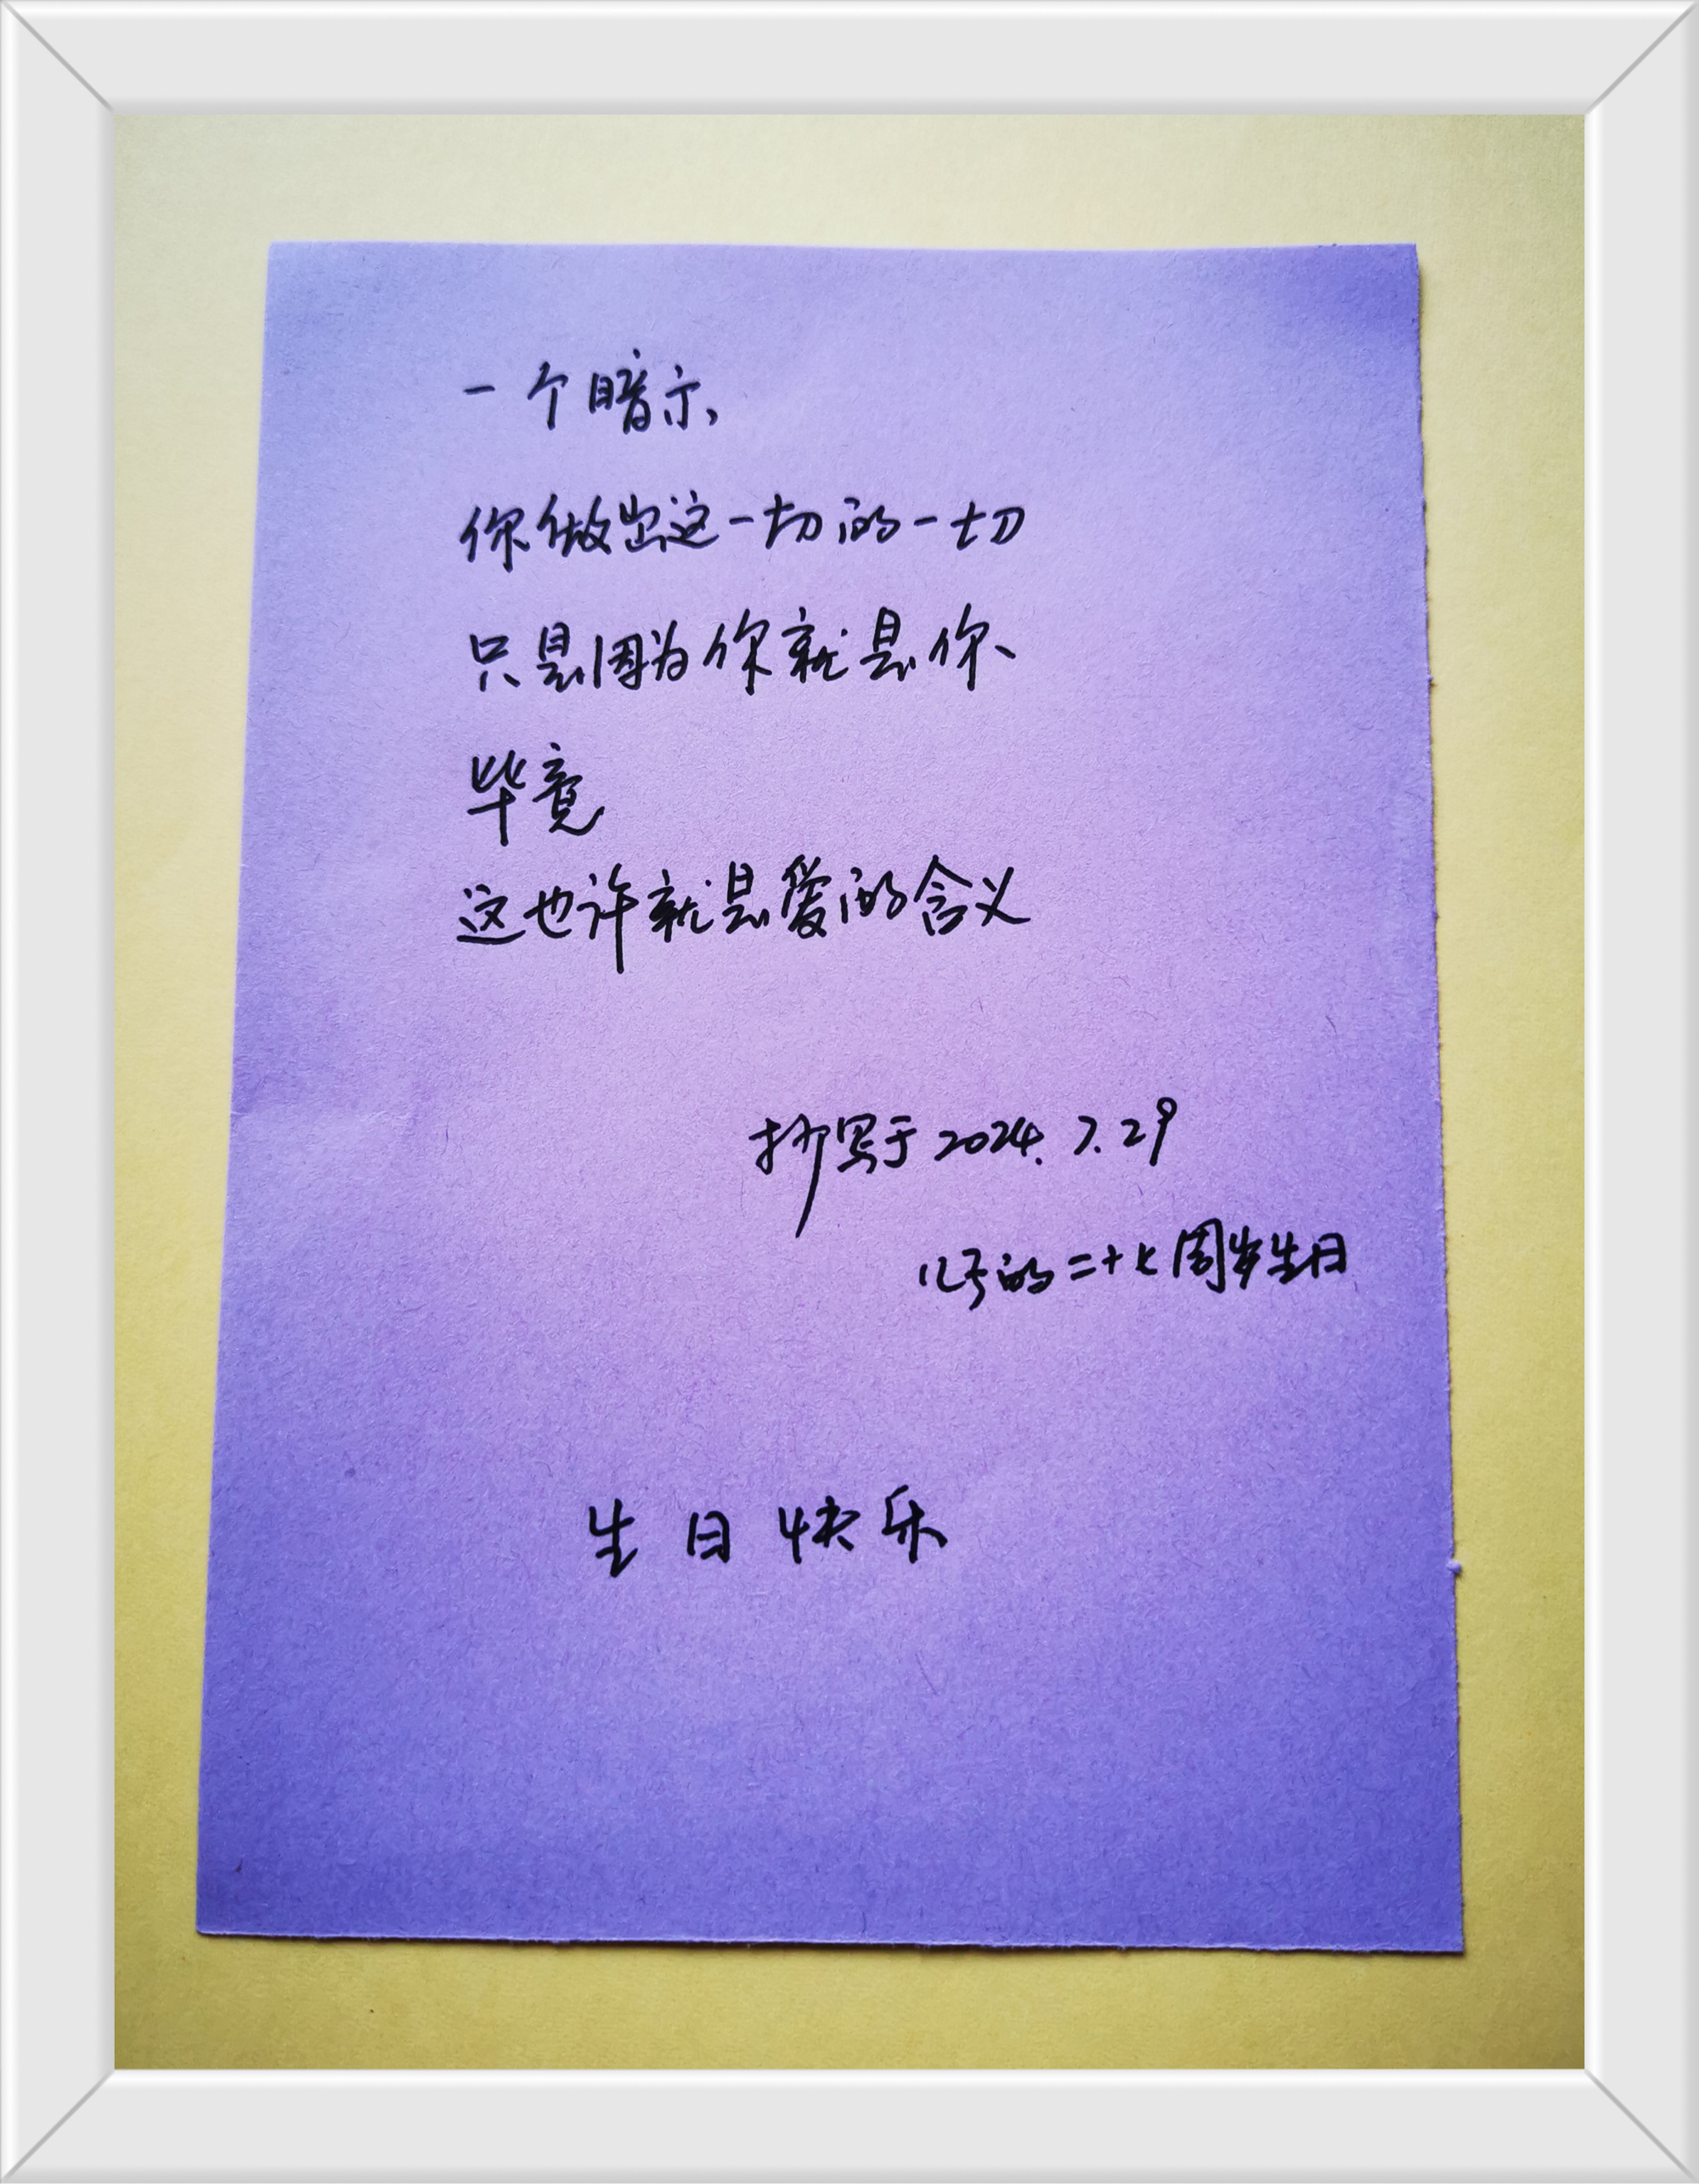 一个暗示,
你做出这一切的一切
只是因为你就是你、
毕竟
这也许就是爱的含义
抄写于2024.7.29
12号的二十七周岁生日
生日快乐